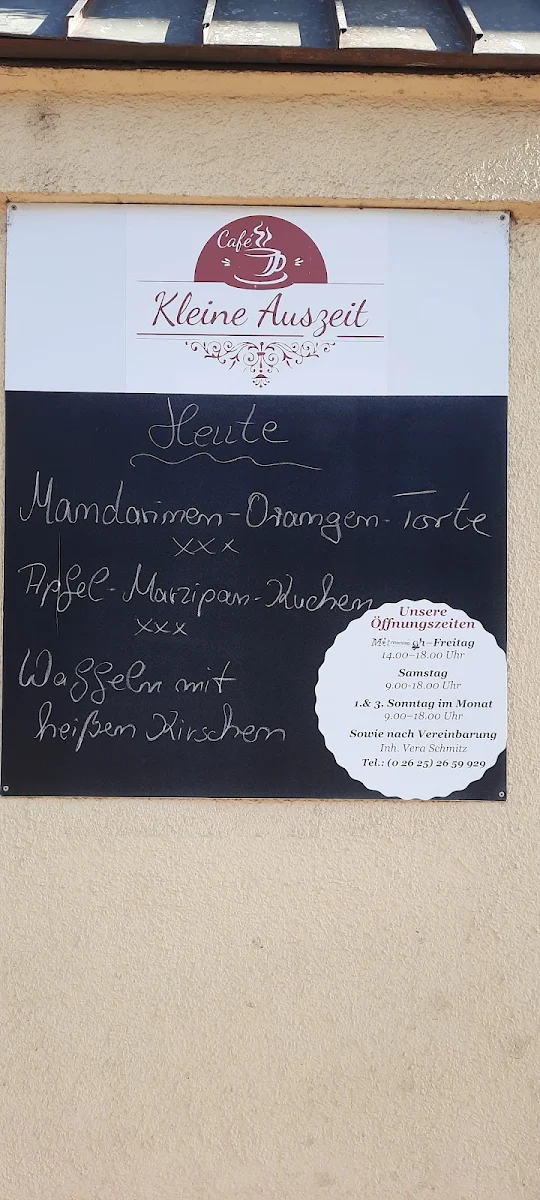 Café
Kleine Auszeit
Heute
Mandarinen-Orangen-Torte
xxx
Apfel-Marzipan-Kuchen
xxx
Waffeln mit
heißen Kirschen
Unsere
Öffnungszeiten
–Freitag
14.00–18.00 Uhr
Samstag
9.00-18.00 Uhr
1.& 3. Sonntag im Monat
9.00–18.00 Uhr
Sowie nach Vereinbarung
Inh. Vera Schmitz
Tel.: (0 26 25) 26 59 929